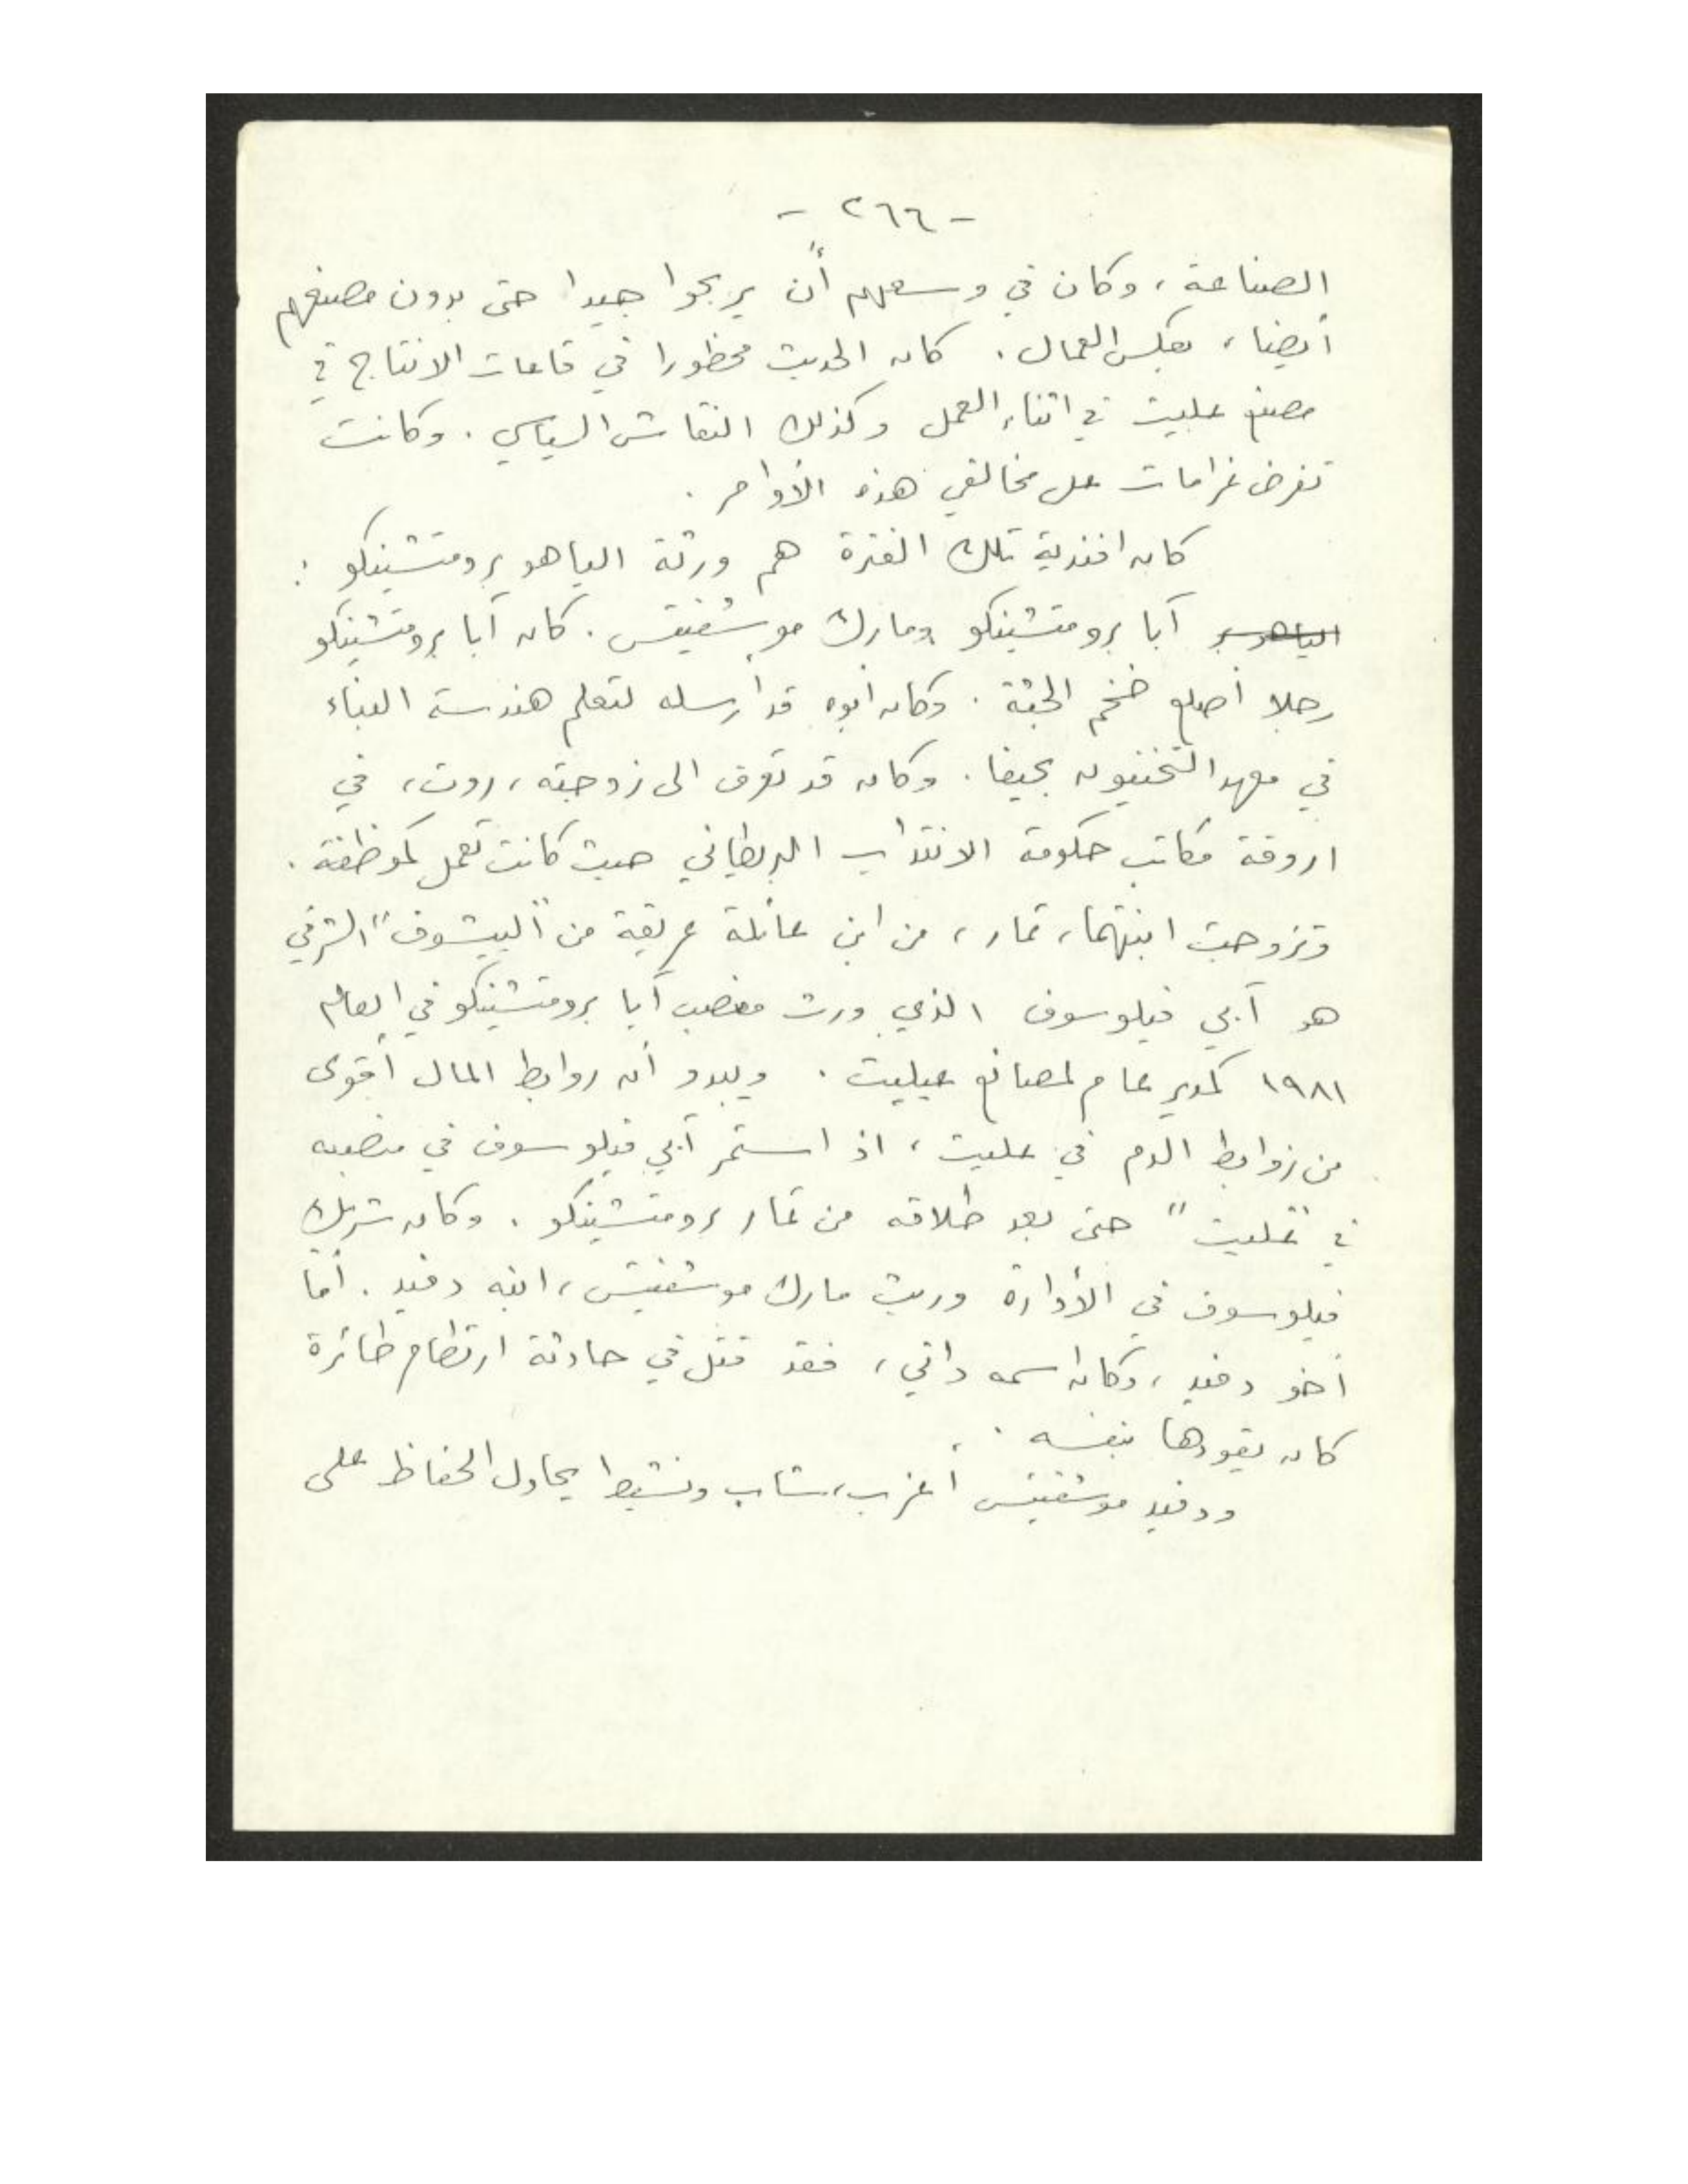 - ٢٦٦ -
الصناعة، وكان في وسعهم أن يربحوا جيدا حتى بدون مصنعهم
أيضا، بعكس العمال. كان الحديث محظورا في قاعات الانتاج في
مصنع عليت في اثناء العمل وكذلك النقاش السياسي. وكانت
تفرض غرامات على مخالفي هذه الأوامر.
كان افندية تلك الفترة هم ورثة الياهو برومتشينكو:
آبا برومتشينكو ومارك موشفيتس. كان آبا برومتشينكو
رجلا أصلع ضخم الجثة. وكان أبوه قد أرسله لتعلم هندسة البناء
في معهد التخنيون بحيفا. وكان قد تعرف الى زوجته، روت، في
اروقة مكاتب حكومة الانتداب البريطاني حيث كانت تعمل كموظفة.
وتزوجت ابنتهما، تمار، من ابن عائلة عريقة من "اليشوف" الشرقي
هو آبي فيلوسوف الذي ورث منصب آبا برومتشينكو في العام
١٩٨١ كمدير عام لمصانع عيليت. ويبدو أن روابط المال أقوى
من روابط الدم في عليت، اذ استمر آبي فيلوسوف في منصبه
في "عليت" حتى بعد طلاقه من تمار برومتشينكو. وكان شريك
فيلوسوف في الأدارة وريث مارك موشفيتس، ابنه دفيد. أما
أخو دفيد، وكان اسمه داني، فقد قتل في حادثة ارتطام طائرة
كان يقودها بنفسه.
ودفيد موشفيتس أعزب، شاب ونشيط يحاول الحفاظ على